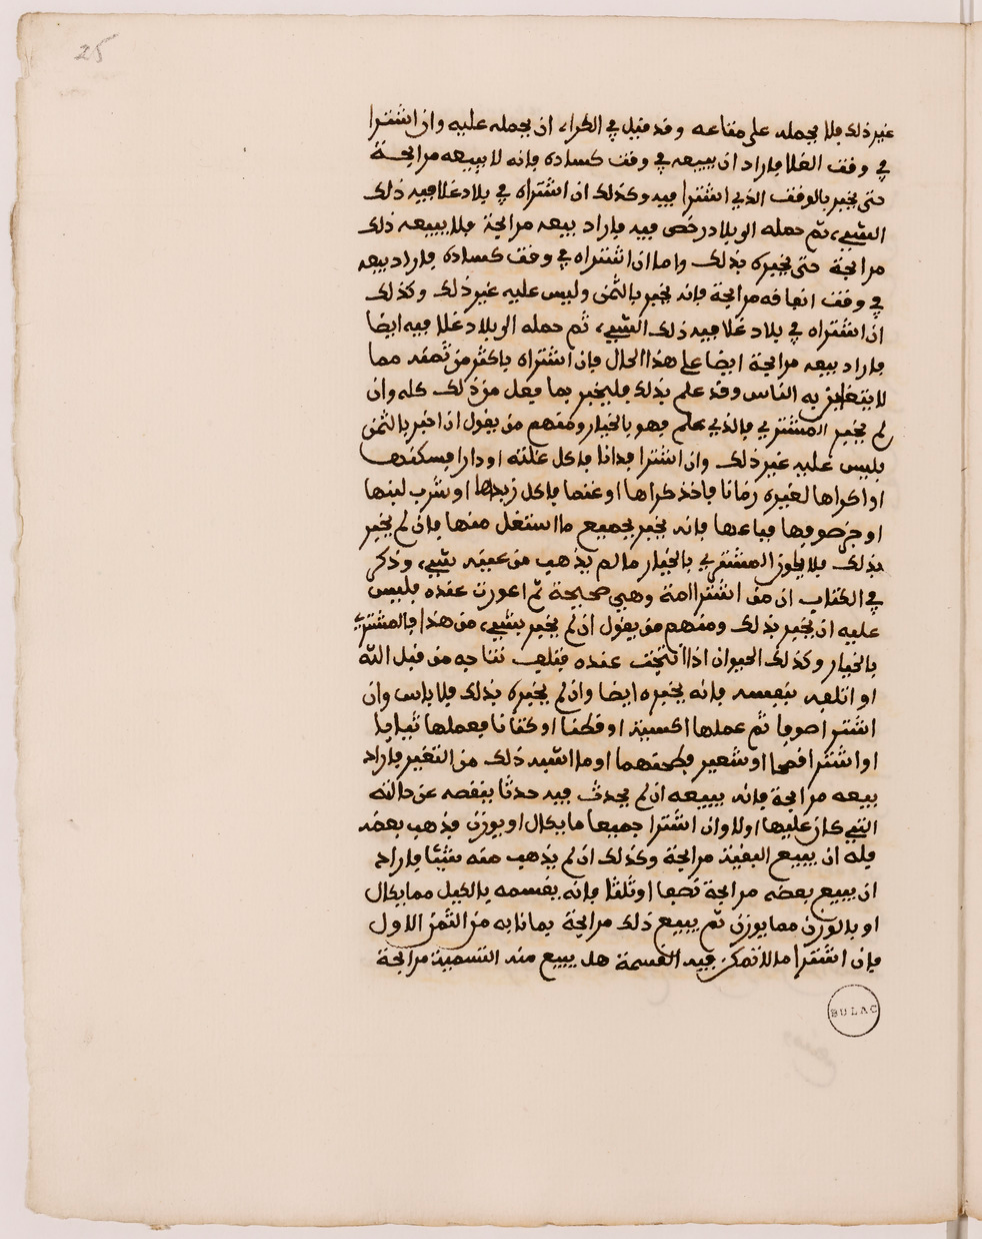 25
غير ذلك فلا يحمله على متاعه وقد قيل في الكراء ان يحمله عليه وان اشترا
في وقت الغلا فاراد ان يبيعه في وقت كساده فانه لا يبيعه مرابحة
حتى يخبر بالوقت الذي اشترا فيه وكذلك ان اشتراه في بلاد غلا فيه ذلك
الشيء ثم حمله الى بلاد رخص فيه فاراد بيعه مرابحة فلا يبيعه ذلك
مرابحة حتى يخبره بذلك واما ان اشتراه في وقت كساده فاراد بيعه
في وقت انفاقه مرابحة فانه يخبر بالثمن وليس عليه غير ذلك وكذلك
ان اشتراه في بلاد غلا فيه ذلك الشيء ثم حمله الى بلاد غلا فيه ايضا
فاراد بيعه مرابحة ايضا على هذا الحال فان اشتراه باكثر من ثمنه مما
لا يتغابن به الناس وقد علم بذلك فليخبر بما فعل من ذلك كله وان
لم يخبر المشتري بالذي علم فهو بالخيار ومنهم من يقول ان اخبر بالثمن
فليس عليه غير ذلك وان اشترا فدانا فاكل غلته او دارا فسكنها
او اكراها لغيره زمانا فاخذ كراها او غنما فاكل زبدها او شرب لبنها
او جز صوفها فباعها فانه يخبر بجميع ما استغل منها فان لم يخبر
بذلك فلا يكون المشتري بالخيار ما لم يذهب من عينه شيء وذكر
في الكتاب ان من اشترا امة وهي صحيحة ثم اعورت عنده فليس
عليه ان يخبر بذلك ومنهم من يقول ان لم يخبر بشيء من هذا فالمشتري
بالخيار وكذلك الحيوان اذا انتجت عنده فتلف نتاجه من قبل الله
او اتلفه بنفسه فانه يخبره ايضا وان لم يخبره بذلك فلا باس وان
اشترا صوفا ثم عملها اكسية او قطنا او كتانا فعملها ثيابا
او اشترا قمحا او شعير فطحنهما او ما اشبه ذلك من التغير فاراد
بيعه مرابحة فانه يبيعه ان لم يحدث فيه حدثا ينقصه عن حالته
التي كان عليها اولا وان اشترا جميعا ما يكال او يوزن فذهب بعضه
فله ان يبيع البقية مرابحة وكذلك ان لم يذهب منه شيئا فاراد
ان يبيع بعضه مرابحة نصفا او ثلثا فانه يقسمه بالكيل مما يكال
او بالوزن مما يوزن ثم يبيع ذلك مرابحة بما نابه من الثمن الاول
فان اشترا ما لا تمكن فيه القسمة هل يبيع منه التسمية مرابحة
BULAC